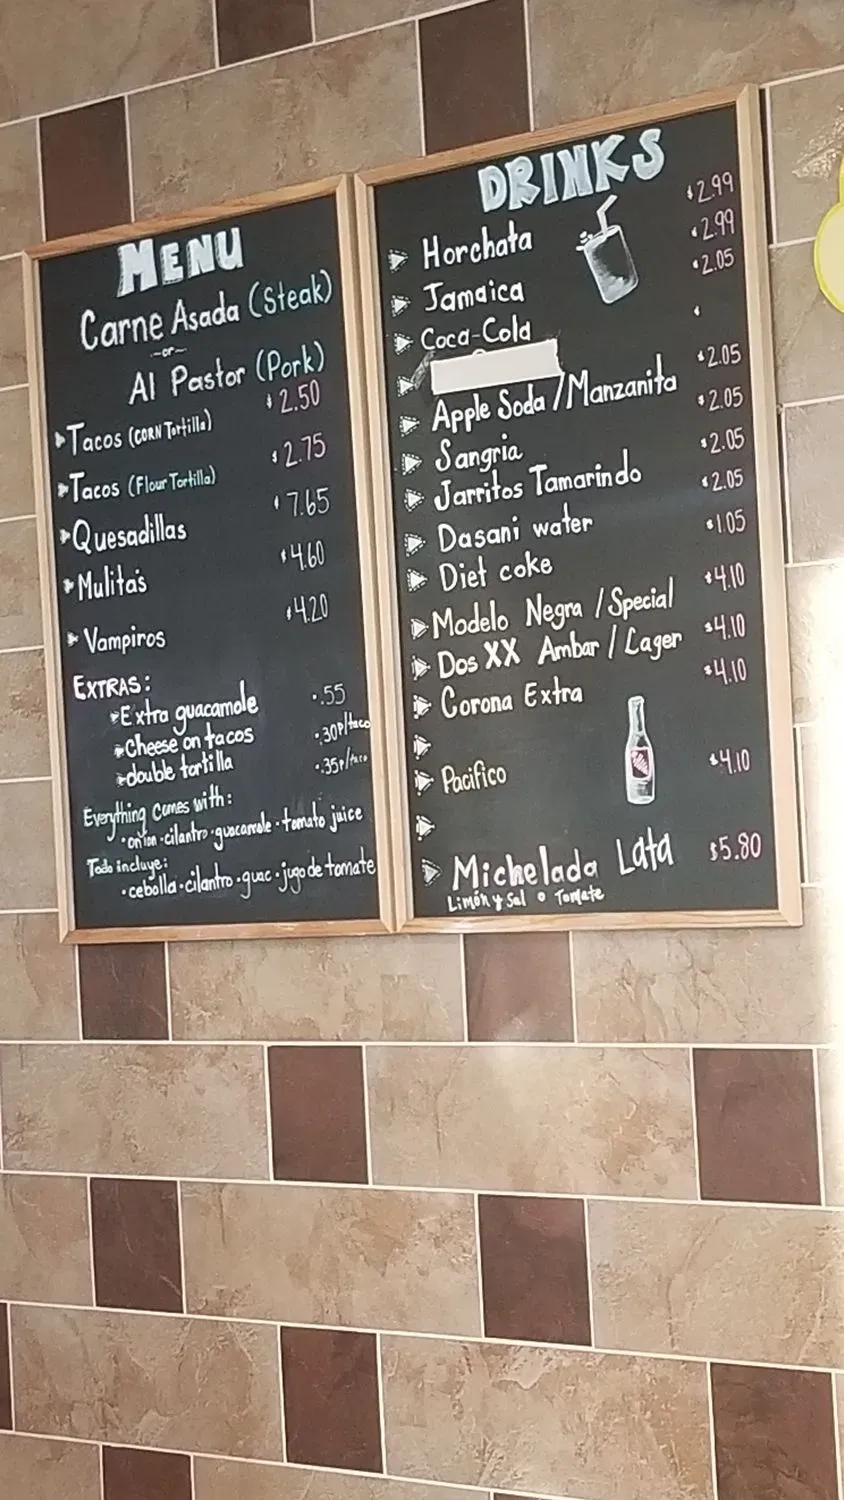 MENU
Carne Asada (Steak)
-or-
Al Pastor (Pork)
Tacos (CORN Tortilla) $2.50
Tacos (Flour Tortilla) $2.75
Quesadillas $7.65
Mulitas $4.60
Vampiros $4.20
EXTRAS:
Extra guacamole .55
Cheese on tacos .30p/taco
double tortilla .35p/taco
Everything comes with:
·onion·cilantro·guacamole·tomato juice
Todo incluye:
·cebolla·cilantro·guac·jugo de tomate
DRINKS
Horchata $2.99
Jamaica $2.99
Coca-Cola $2.05
Apple Soda/Manzanita $2.05
Sangria $2.05
Jarritos Tamarindo $2.05
Dasani water $2.05
Diet coke $1.05
Modelo Negra/Special $4.10
Dos XX Ambar/Lager $4.10
Corona Extra $4.10
Pacifico $4.10
Michelada Lata $5.80
Limón y Sal o Tomate